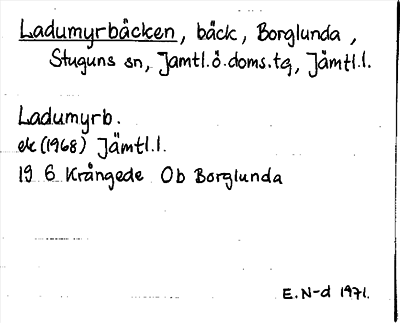 Ladumyrbäcken, bäck, Borglunda,
Stuguns sn, Jämtl.ö.doms.tg, Jämtl.l.
Ladumyrb.
ek (1968) Jämtl.l.
19 G Krångede Ob Borglunda
E.N-d 1971.